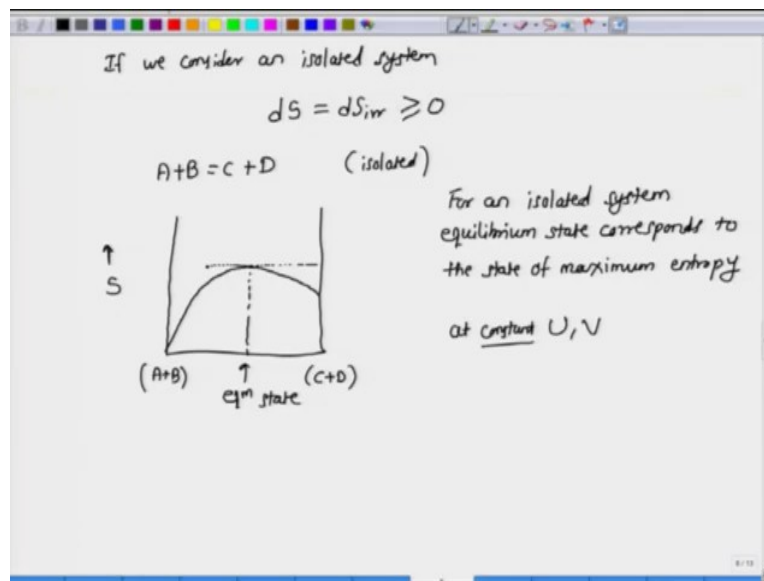 If we consider an isolated system
dS = dSirr ⩾ 0
A+B = C+D (isolated)
For an isolated system
equilibrium state corresponds to
the state of maximum entropy
at constant U, V
↑
S
(A+B) ↑ (C+D)
eqm state
8/13